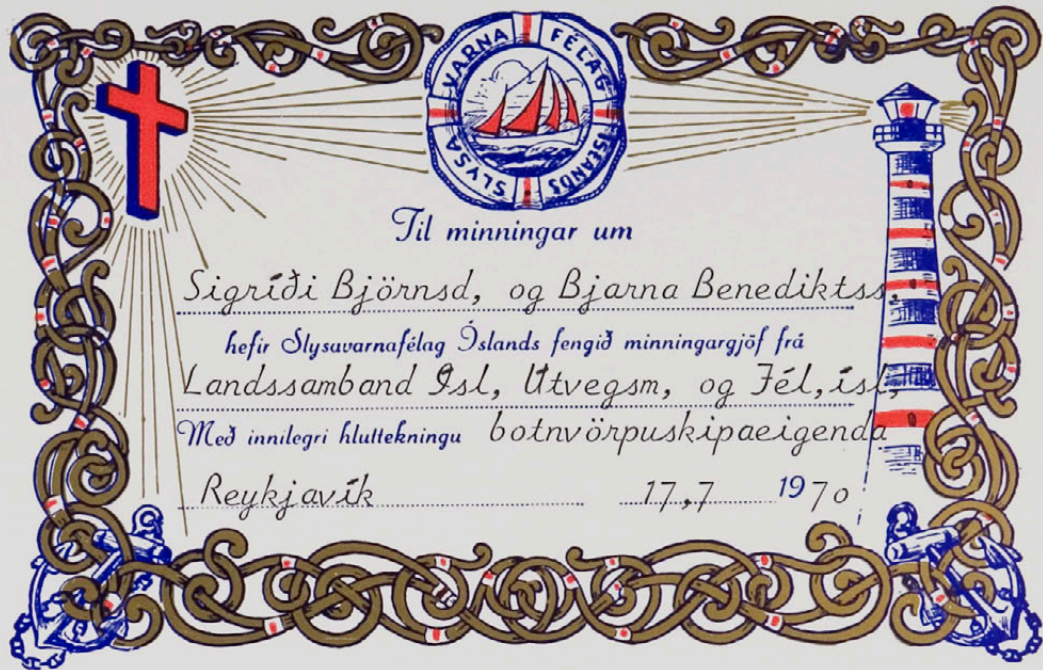 SLYSAVARNAFÉLAG ÍSLANDS
Til minningar um
Sigríði Björnsd, og Bjarna Benediktss,
hefir Slysavarnafélag Íslands fengið minningargjöf frá
Landssamband Ísl, Útvegsm, og Fél, ísl,
Með innilegri hluttekningu botnvörpuskipaeigenda
Reykjavík 17,7 1970